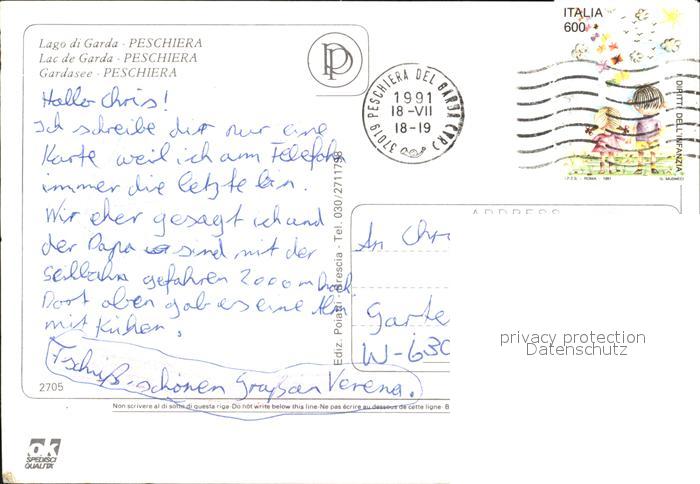 Lago di Garda - PESCHIERA
Lac de Garda - PESCHIERA
Gardasee - PESCHIERA
PP
37019 PESCHIERA DEL GARDA (VR)
1991
18-VII
18-19
ITALIA
600
I DIRITTI DELL'INFANZIA
I.P.Z.S. - ROMA - 1991
Hallo Chris!
Ich schreibe dir nur eine
Karte weil ich am Telefon
immer die letzte bin.
Wir eher gesagt ich und
der Papa sind mit der
Seilbahn gefahren 2000 m hoch
Dort oben gab es eine Alm
mit Kühen.
Tschüß. schönen Gruß an Verena.
Ediz. Poiatti - Brescia - Tel. 030/2711798
ADDRESS
An Chri
Garte
W-630
privacy protection
Datenschutz
2705
Non scrivere al di sotto di questa riga - Do not write below this line - Ne pas écrire au dessous de cette ligne - B
ok
SPEDISCI
QUALITÀ